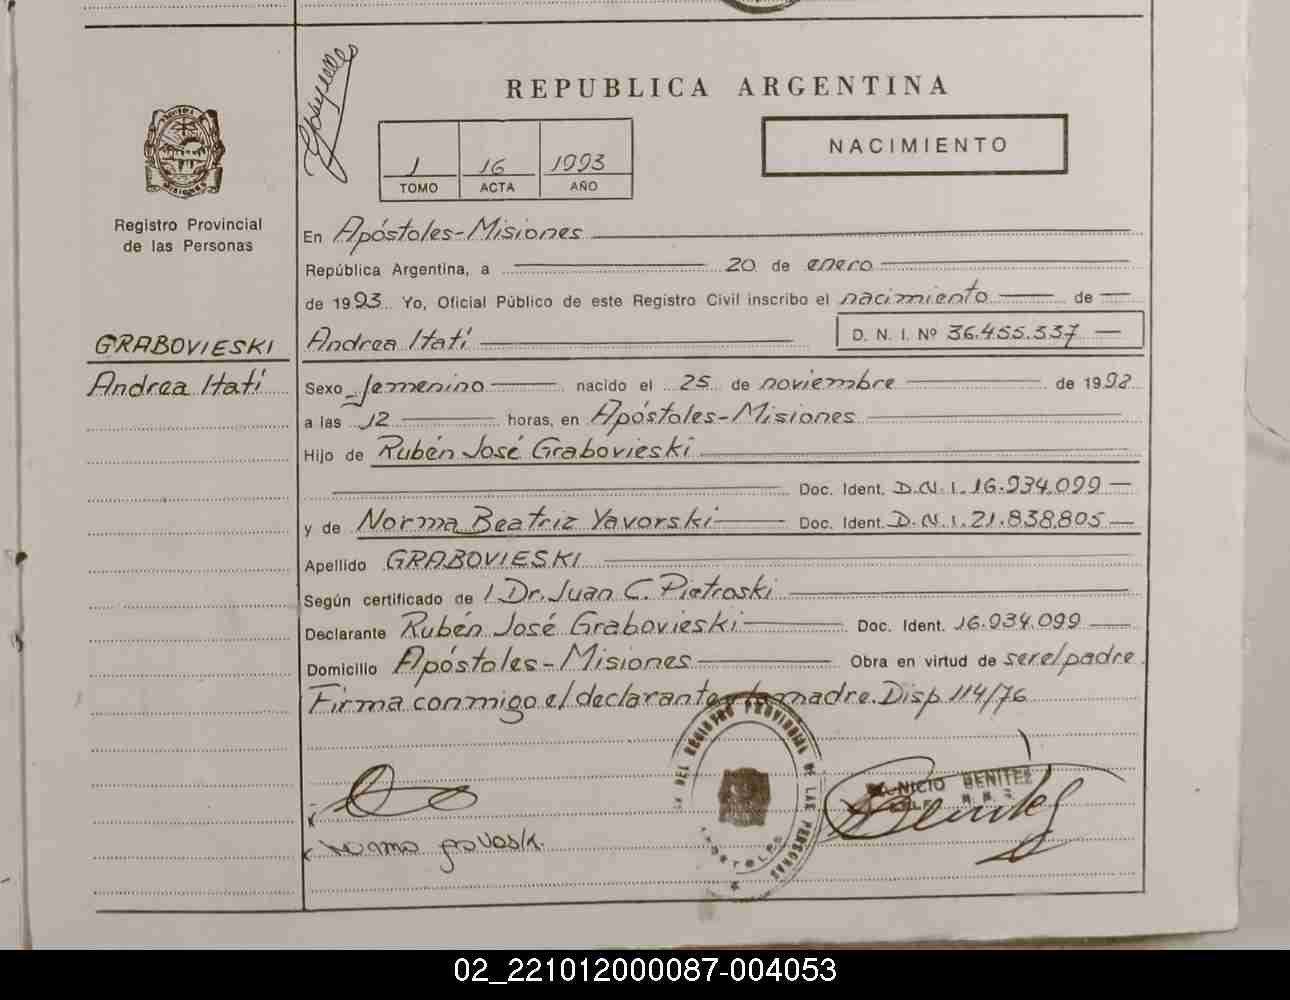 REPUBLICA ARGENTINA
NACIMIENTO
1 16 1993
TOMO ACTA AÑO
Registro Provincial
de las Personas
En Apóstoles-Misiones
República Argentina, a 20 de enero
de 1993 Yo, Oficial Público de este Registro Civil inscribo el nacimiento de
GRABOVIESKI
Andrea Itatí
Andrea Itatí D. N. I. Nº 36.455.537
Sexo femenino nacido el 25 de noviembre de 1992
a las 12 horas, en Apóstoles-Misiones
Hijo de Rubén José Grabovieski
Doc. Ident. D.N.I. 16.934.099
y de Norma Beatriz Yavorski Doc. Ident. D.N.I. 21.838.805
Apellido GRABOVIESKI
Según certificado de / Dr. Juan C. Pietroski
Declarante Rubén José Grabovieski Doc. Ident. 16.934.099
Domicilio Apóstoles-Misiones Obra en virtud de ser el padre
Firma conmigo el declarante y la madre. Disp. 114/76
DEL REGISTRO PROVINCIAL DE LAS PERSONAS
APOSTOLES
BENITEZ
02_221012000087-004053